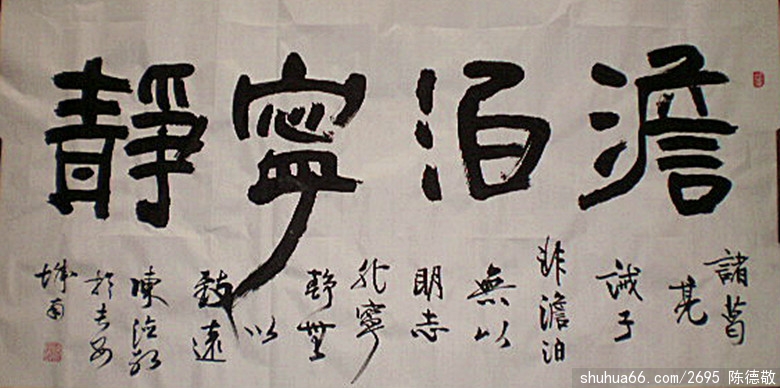 澹泊寧靜
諸葛
亮
誡子
非澹泊
無以
明志
非寧
靜無
以
致遠
陳德敬
於長安
城南
shuhua66.com/2695 陈德敬